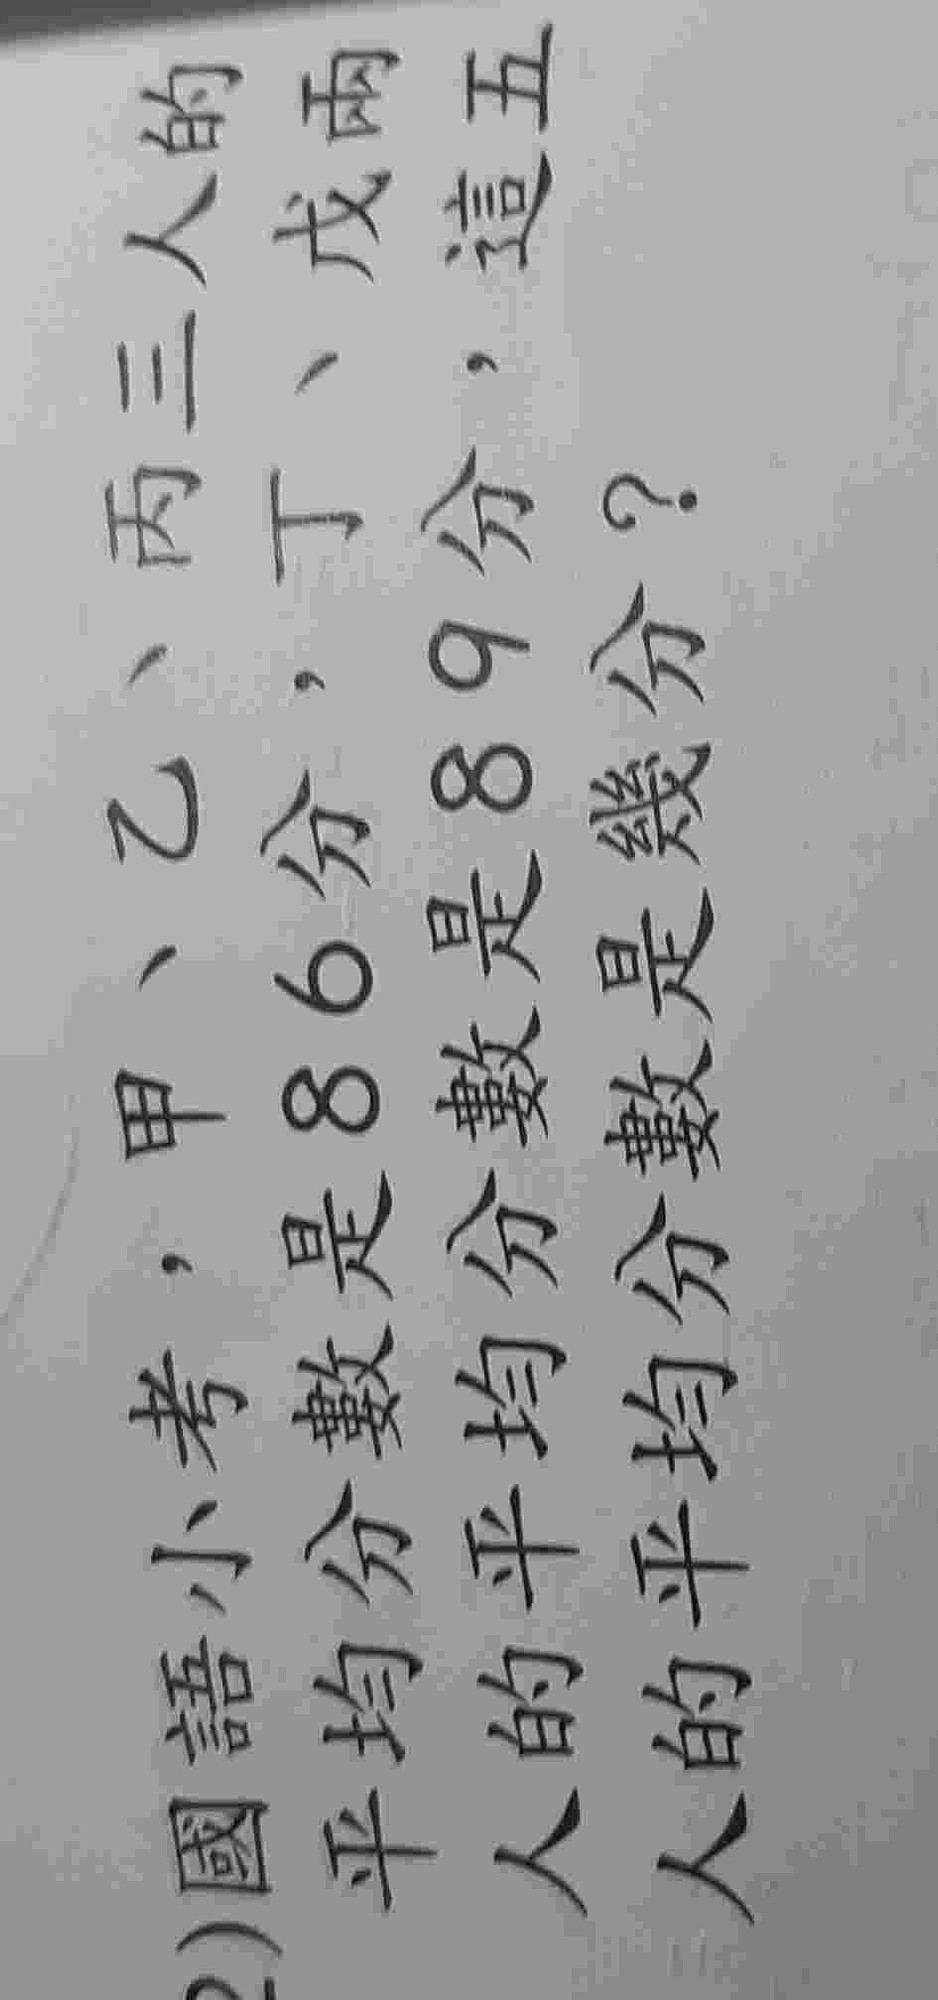 2)國語小考，甲、乙、丙三人的
平均分數是86分，丁、戊兩
人的平均分數是89分，這五
人的平均分數是幾分？